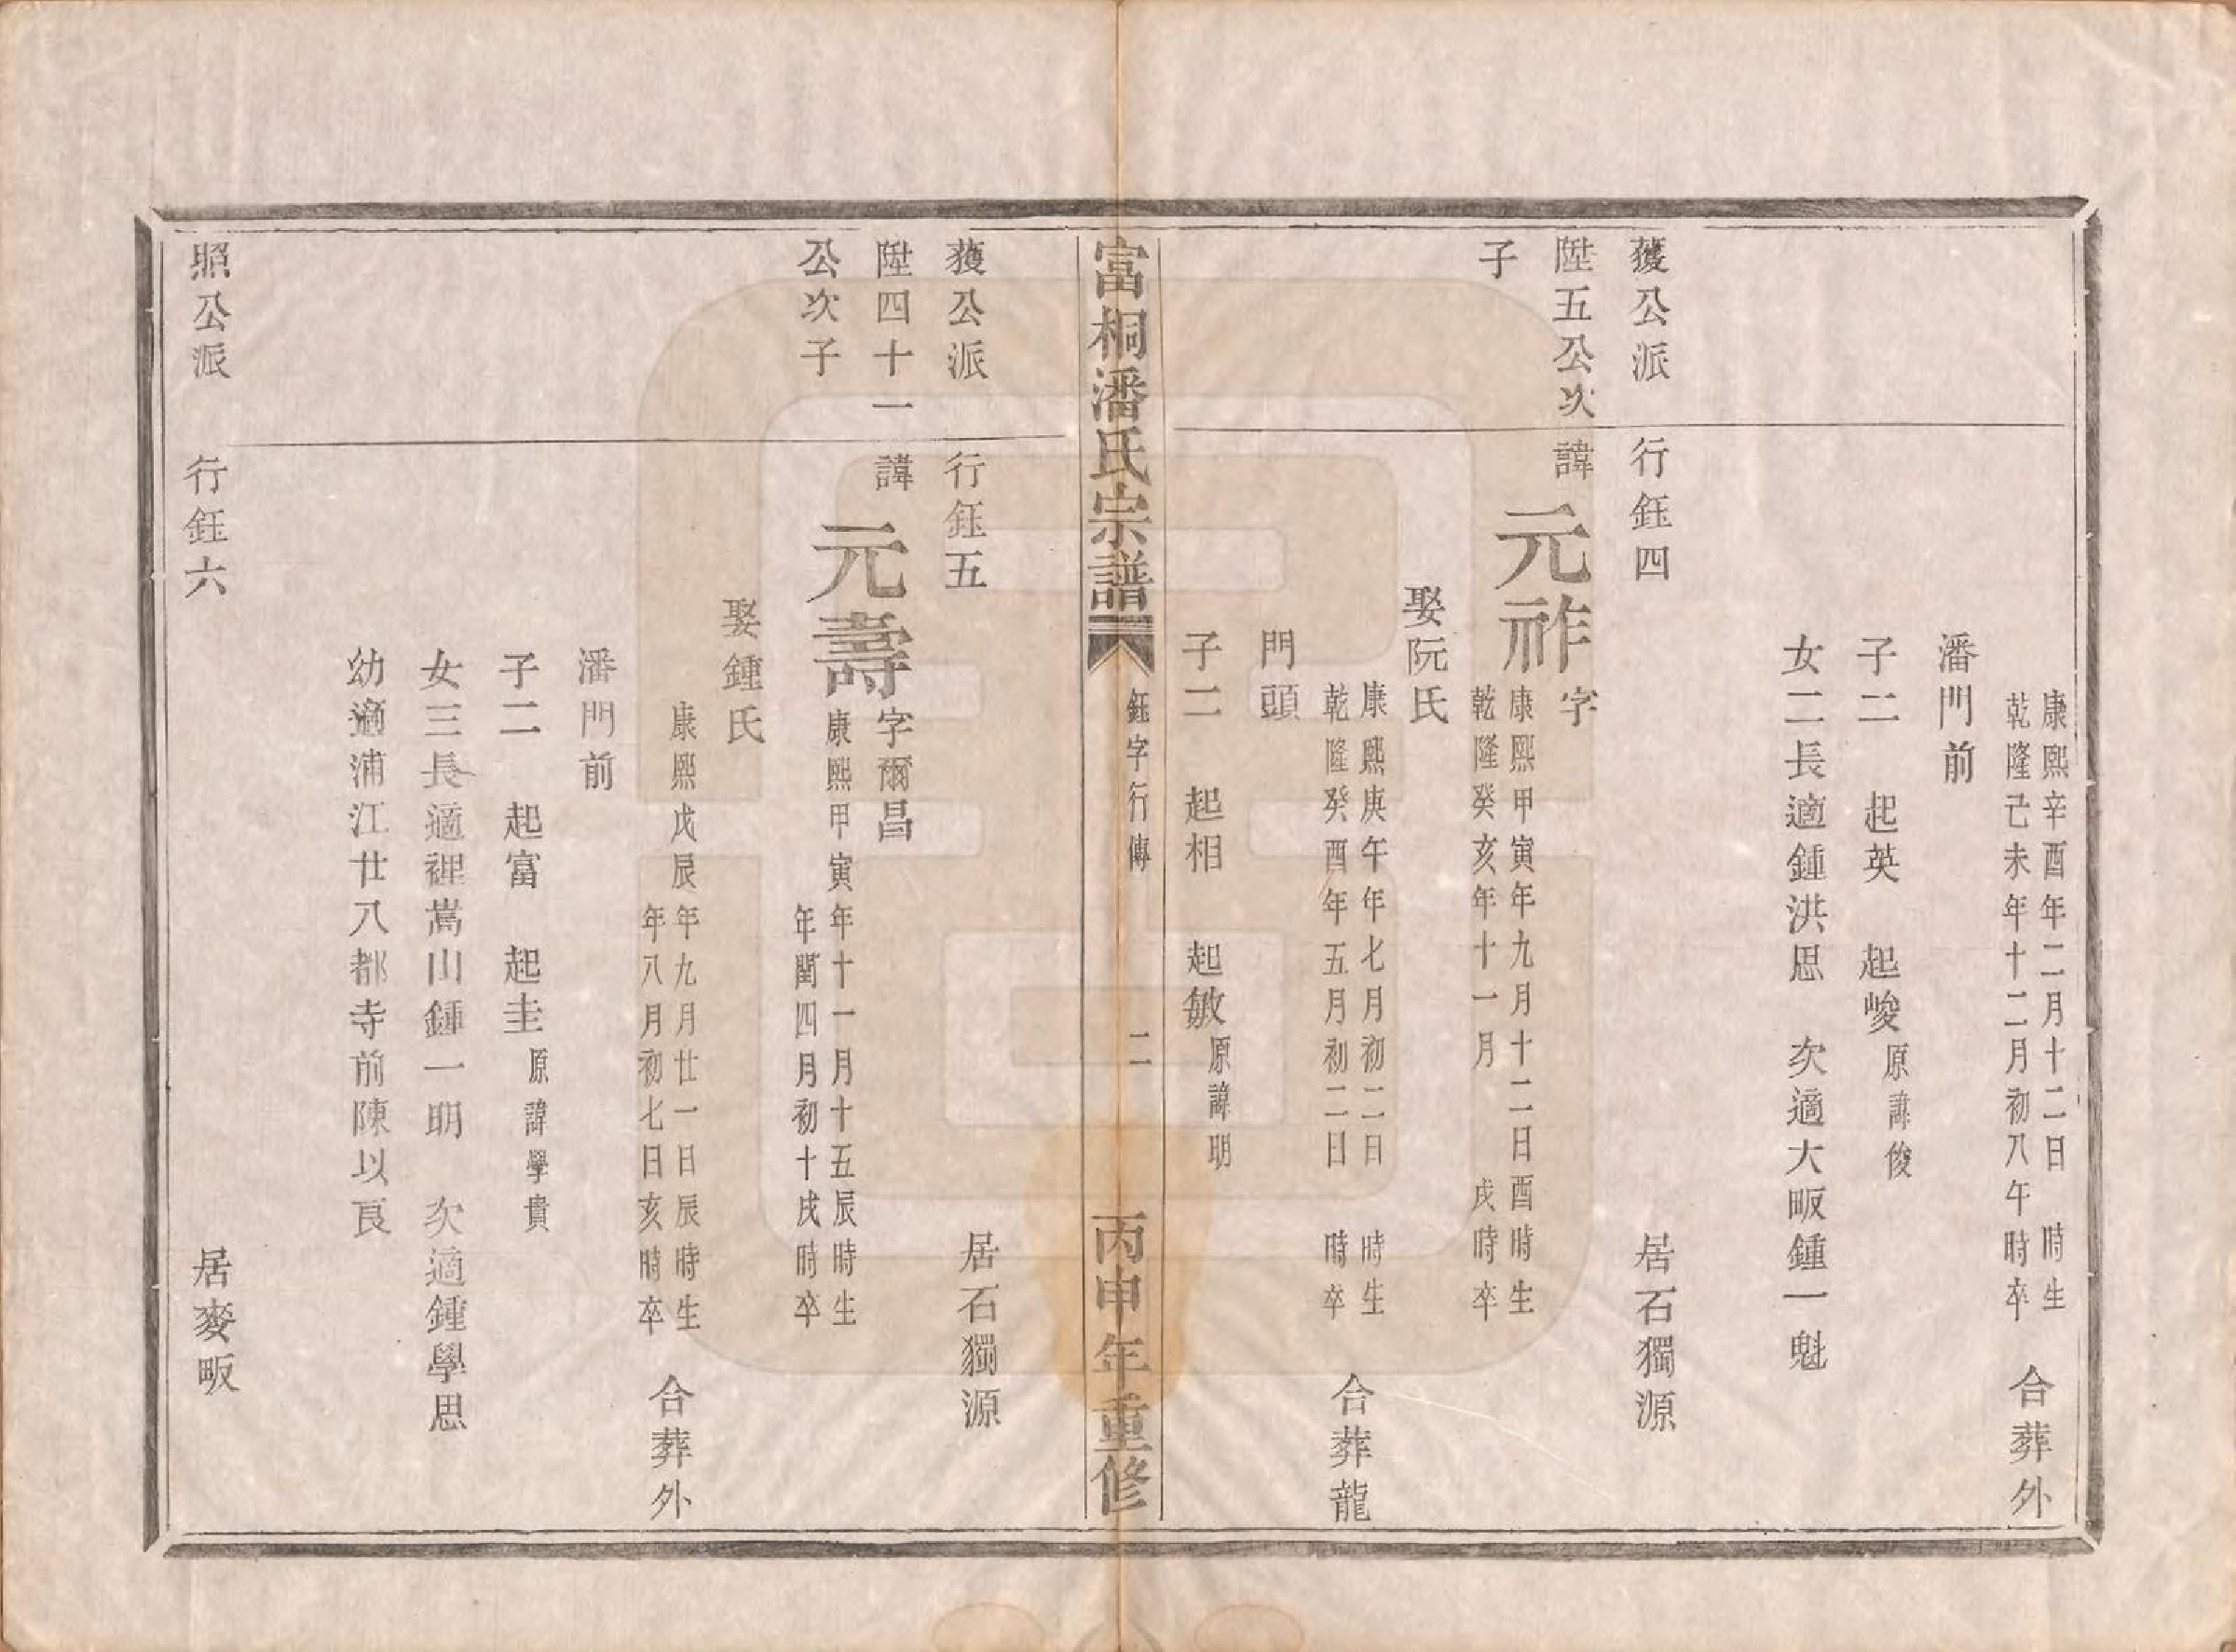 康熙辛酉年二月十二日　時生
乾隆己未年十二月初八午時卒　合葬外
潘門前
子二　起英　起峻原諱俊
女二長適鍾洪思　次適大畈鍾一魁
獲公派　行鈺四　居石獨源
陞五公次　諱元祚字
子
康熙甲寅年九月十二日酉時生
乾隆癸亥年十一月　戌時卒
娶阮氏
康熙庚午年七月初二日　時生
乾隆癸酉年五月初二日　時卒　合葬龍
門頭
子二　起相　起敏原諱明
富桐潘氏宗譜　鈺字行傳　二　丙申年重修
獲公派　行鈺五　居石獨源
陞四十一　諱元壽字爾昌
公次子
康熙甲寅年十一月十五辰時生
年閏四月初十戌時卒
娶鍾氏
康熙戊辰年九月廿一日辰時生
年八月初七日亥時卒　合葬外
潘門前
子二　起富　起圭原諱學貴
女三長適裡嵩山鍾一明　次適鍾學思
幼適浦江廿八都寺前陳以良
照公派　行鈺六　居麥畈